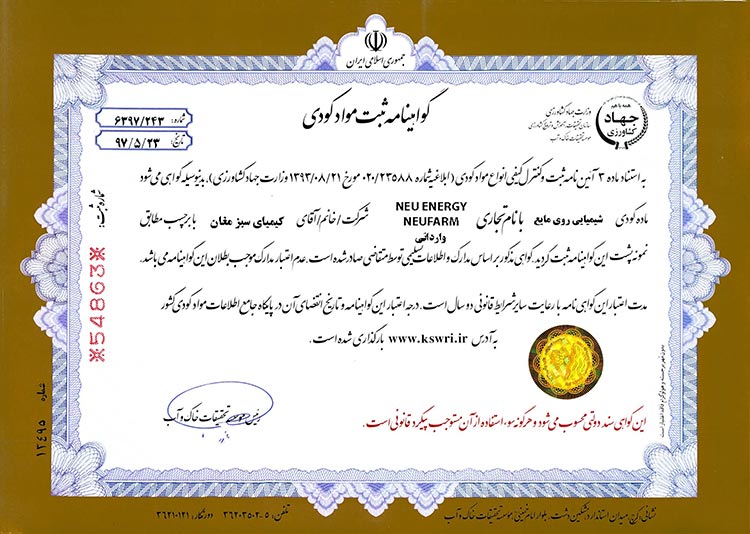 جمهوری اسلامی ایران
گواهینامه ثبت مواد کودی
شماره: ۶۳۹۷/۲۴۳
تاریخ: ۹۷/۵/۲۳
همه با هم
جهاد
کشاورزی
وزارت جهاد کشاورزی
سازمان تحقیقات، آموزش و ترویج کشاورزی
موسسه تحقیقات خاک و آب
به استناد ماده ۳ آئین نامه ثبت و کنترل کیفی انواع مواد کودی (ابلاغیه شماره ۰۲۰/۲۳۵۸۸ مورخ ۱۳۹۳/۰۸/۲۱ وزارت جهاد کشاورزی)، بدینوسیله گواهی می شود
ماده کودی شیمیایی روی مایع با نام تجاری NEU ENERGY NEUFARM وارداتی شرکت/خانم/آقای کیمیای سبز مغان با برچسب مطابق
نمونه پشت این گواهینامه ثبت گردید. گواهی مذکور بر اساس مدارک و اطلاعات تسلیمی توسط متقاضی صادر شده است. عدم اعتبار مدارک موجب بطلان این گواهینامه می باشد.
مدت اعتبار این گواهی نامه با رعایت سایر شرایط قانونی دو سال است. درجه اعتبار این گواهینامه و تاریخ انقضای آن در پایگاه جامع اطلاعات مواد کودی کشور
به آدرس www.kswri.ir بارگذاری شده است.
شماره ثبت:
※54863※
رئیس موسسه تحقیقات خاک و آب
این گواهی سند دولتی محسوب می شود و هرگونه سوء استفاده از آن مستوجب پیگرد قانونی است.
بدون مهر برجسته و هولوگرام فاقد اعتبار است.
شماره
۱۲۴۹۵
نشانی: کرج، میدان استاندارد، مشکین دشت، بلوار امام خمینی، موسسه تحقیقات خاک و آب
تلفن: ۵-۳۶۲۰۳۵۰۲ دورنگار: ۳۶۲۱۰۱۲۱